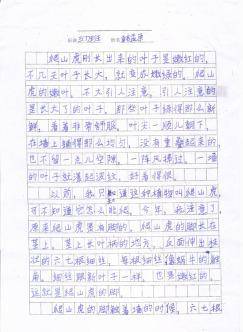 爬山虎刚长出来的叶子是嫩红的，
不几天叶子长大，就变成嫩绿的。爬山
虎的嫩叶，不大引人注意，引人注意的
是长大了的叶子。那些叶子绿得那么新
鲜，看着非常舒服，叶尖一顺儿朝下，
在墙上铺得那么均匀，没有重叠起来的，
也不留一点儿空隙。一阵风拂过，一墙
的叶子就漾起波纹，好看得很。
以前，我只知道这种植物叫爬山虎，
可不知道它怎么能爬。今年，我注意了，
原来爬山虎是有脚的。爬山虎的脚长在
茎上。茎上长叶柄的地方，反面伸出枝
状的六七根细丝，每根细丝像蜗牛的触
角。细丝跟新叶子一样，也是嫩红的。
这就是爬山虎的脚。
爬山虎的脚触着墙的时候，六七根